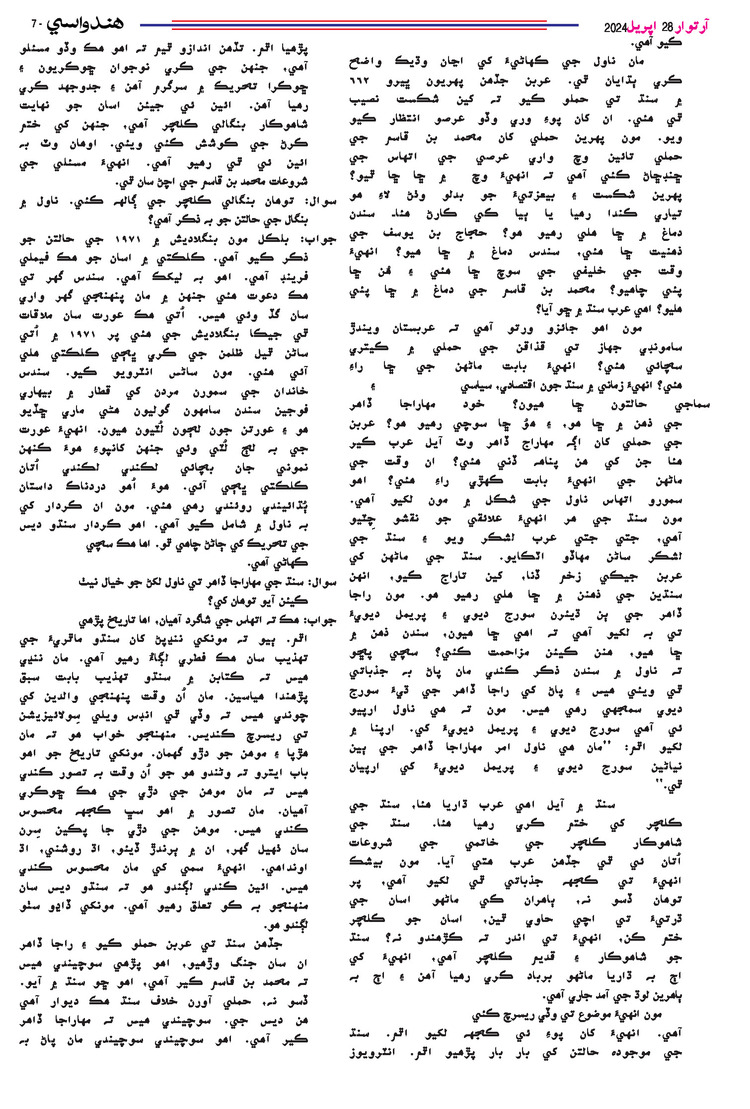 آرتوار 28 اپريل 2024
هندواسي - 7
ڪيو آهي.
مان ناول جي ڪهاڻيءَ کي اڃان وڌيڪ واضح
ڪري ٻڌايان ٿي. عربن جڏهن پهريون ڀيرو ٦٦٢
۾ سنڌ تي حملو ڪيو ته کين شڪست نصيب
ٿي هئي. ان کان پوءِ وري وڏو عرصو انتظار ڪيو
ويو. مون پهرين حملي کان محمد بن قاسم جي
حملي تائين وچ واري عرصي جي اتهاس جي
ڇنڊڇاڻ ڪئي آهي ته انهيءَ وچ ۾ ڇا ڇا ٿيو؟
پهرين شڪست ۽ بيعزتيءَ جو بدلو وٺڻ لاءِ هو
تياري ڪندا رهيا يا ٻيا ڪي ڪارڻ هئا. سندن
دماغ ۾ ڇا هلي رهيو هو؟ حجاج بن يوسف جي
ذهنيت ڇا هئي، سندس دماغ ۾ ڇا هيو؟ انهيءَ
وقت جي خليفي جي سوچ ڇا هئي ۽ هُن ڇا
پئي چاهيو؟ محمد بن قاسم جي دماغ ۾ ڇا پئي
هليو؟ اهي عرب سنڌ ۾ ڇو آيا؟
مون اهو جائزو ورتو آهي ته عربستان ويندڙ
سامونڊي جهاز تي قذاقن جي حملي ۾ ڪيتري
سچائي هئي؟ انهيءَ بابت ماڻهن جي ڇا راءِ
هئي؟ انهيءَ زماني ۾ سنڌ جون اقتصادي، سياسي ۽
سماجي حالتون ڇا هيون؟ خود مهاراجا ڏاهر
جي ذهن ۾ ڇا هو، ۽ هوُ ڇا سوچي رهيو هو؟ عربن
جي حملي کان اڳه مهاراج ڏاهر وٽ آيل عرب ڪير
هئا جن کي هن پناهه ڏني هئي؟ ان وقت جي
ماڻهن جي انهيءَ بابت ڪهڙي راءِ هئي؟ اهو
سمورو اتهاس ناول جي شڪل ۾ مون لکيو آهي.
مون سنڌ جي هر انهيءَ علائقي جو نقشو چٽيو
آهي، جتي جتي عرب لشڪر ويو ۽ سنڌ جي
لشڪر ساڻن مهاڏو اٽڪايو. سنڌ جي ماڻهن کي
عربن جيڪي زخر ڏنا، کين تاراج ڪيو، انهن
سنڌين جي ذهنن ۾ ڇا هلي رهيو هو. مون راجا
ڏاهر جي ٻن ڌيئرن سورج ديوي ۽ پريمل ديويءَ
تي به لکيو آهي ته اهي ڇا هيون، سندن ذهن ۾
ڇا هيو، هنن ڪيئن مزاحمت ڪئي؟ سچي پڇو
ته ناول ۾ سندن ذڪر ڪندي مان پاڻ به جذباتي
ٿي ويئي هيس ۽ پاڻ کي راجا ڏاهر جي ڌيءَ سورج
ديوي سمجهي رهي هيس. مون ته هي ناول ارپيو
ئي آهي سورج ديوي ۽ پريمل ديويءَ کي. ارپنا ۾
لکيو اٿم: ''مان هي ناول امر مهاراجا ڏاهر جي ٻين
نياڻين سورج ديوي ۽ پريمل ديويءَ کي ارپيان
ٿي.''
سنڌ ۾ آيل اهي عرب ڌاريا هئا، سنڌ جي
ڪلچر کي ختم ڪري رهيا هئا. سنڌ جي
شاهوڪار ڪلچر جي خاتمي جي شروعات
اُتان ئي ٿي جڏهن عرب هتي آيا. مون بيشڪ
انهيءَ تي ڪجهه جذباتي ٿي لکيو آهي، پر
توهان ڏسو نه، ٻاهران کي ماڻهو اسان جي
ڌرتيءَ تي اچي حاوي ٿين، اسان جو ڪلچر
ختم ڪن، انهيءَ تي اندر ته ڪڙهندو نه؟ سنڌ
جو شاهوڪار ۽ قديم ڪلچر آهي، انهيءَ کي
اڄ به ڌاريا ماڻهو برباد ڪري رهيا آهن ۽ اڄ به
ٻاهرين لوڌ جي آمد جاري آهي.
مون انهيءَ موضوع تي وڏي ريسرچ ڪئي
آهي. انهيءَ کان پوءِ ئي ڪجهه لکيو اٿم. سنڌ
جي موجوده حالتن کي بار بار پڙهيو اٿم. انٽرويوز
پڙهيا اٿم. تڏهن اندازو ٿيم ته اهو هڪ وڏو مسئلو
آهي، جنهن جي ڪري نوجوان ڇوڪريون ۽
ڇوڪرا تحريڪ ۾ سرگرم آهن ۽ جدوجهد ڪري
رهيا آهن. ائين ئي جيئن اسان جو نهايت
شاهوڪار بنگالي ڪلچر آهي، جنهن کي ختم
ڪرڻ جي ڪوشش ڪئي ويئي. اوهان وٽ به
ائين ئي ٿي رهيو آهي. انهيءَ مسئلي جي
شروعات محمد بن قاسم جي اچڻ سان ٿي.
سوال: توهان بنگالي ڪلچر جي ڳالهه ڪئي. ناول ۾
بنگال جي حالتن جو به ذڪر آهي؟
جواب: بلڪل مون بنگلاديش ۾ ١٩٧١ جي حالتن جو
ذڪر ڪيو آهي. ڪلڪتي ۾ اسان جو هڪ فيملي
فرينڊ آهي. اهو به ليکڪ آهي. سندس گهر تي
هڪ دعوت هئي جنهن ۾ مان پنهنجي گهر واري
سان گڏ وئي هيس. اُتي هڪ عورت سان ملاقات
ٿي جيڪا بنگلاديش جي هئي پر ١٩٧١ ۾ اُتي
ساڻن ٿيل ظلمن جي ڪري ڀڄي ڪلڪتي هلي
آئي هئي. مون ساڻس انٽرويو ڪيو. سندس
خاندان جي سمورن مردن کي قطار ۾ بيهاري
فوجين سندن سامهون گوليون هڻي ماري ڇڏيو
هو ۽ عورتن جون لڄون لُٽيون هيون. انهيءَ عورت
جي به لڄ لُٽي وئي جنهن کانپوءِ هوءَ ڪنهن
نموني جان بچائي لڪندي لڪندي اُتان
ڪلڪتي ڀڄي آئي. هوءَ اُهو دردناڪ داستان
ٻُڌائيندي روئندي رهي هئي. مون ان ڪردار کي
به ناول ۾ شامل ڪيو آهي. اهو ڪردار سنڌو ديس
جي تحريڪ کي ڄاڻڻ چاهي ٿو. اها هڪ سچي
ڪهاڻي آهي.
سوال: سنڌ جي مهاراجا ڏاهر تي ناول لکڻ جو خيال نيٺ
ڪيئن آيو توهان کي؟
جواب: هڪ ته اتهاس جي شاگرد آهيان، اها تاريخ پڙهي
اٿم. ٻيو ته مونکي ننڍپڻ کان سنڌو ماٿريءَ جي
تهذيب سان هڪ فطري لڳاءُ رهيو آهي. مان ننڍي
هيس ته ڪتابن ۾ سنڌو تهذيب بابت سبق
پڙهندا هياسين. مان اُن وقت پنهنجي والدين کي
چوندي هيس ته وڏي ٿي انڊس ويلي سِولائيزيشن
تي ريسرچ ڪنديس. منهنجو خواب هو ته مان
هڙپا ۽ موهن جو دڙو گهمان. مونکي تاريخ جو اهو
باب ايترو ته وڻندو هو جو اُن وقت به تصور ڪندي
هيس ته مان موهن جي دڙي جي هڪ ڇوڪري
آهيان. مان تصور ۾ اهو سڀ ڪجهه محسوس
ڪندي هيس. موهن جي دڙي جا پڪين سِرن
سان ٺهيل گهر، ان ۾ ٻرندڙ ڏيئو، اڌ روشني، اڌ
اونداهي. انهيءَ سمي کي مان محسوس ڪندي
هيس. ائين ڪندي لڳندو هو ته سنڌو ديس سان
منهنجو به ڪو تعلق رهيو آهي. مونکي ڏاڍو سٺو
لڳندو هو.
جڏهن سنڌ تي عربن حملو ڪيو ۽ راجا ڏاهر
ان سان جنگ وڙهيو، اهو پڙهي سوچيندي هيس
ته محمد بن قاسم ڪير آهي، اهو ڇو سنڌ ۾ آيو.
ڏسو نه، حملي آورن خلاف سنڌ هڪ ديوار آهي
هن ديس جي. سوچيندي هيس ته مهاراجا ڏاهر
ڪير آهي. اهو سوچيندي سوچيندي مان پاڻ به